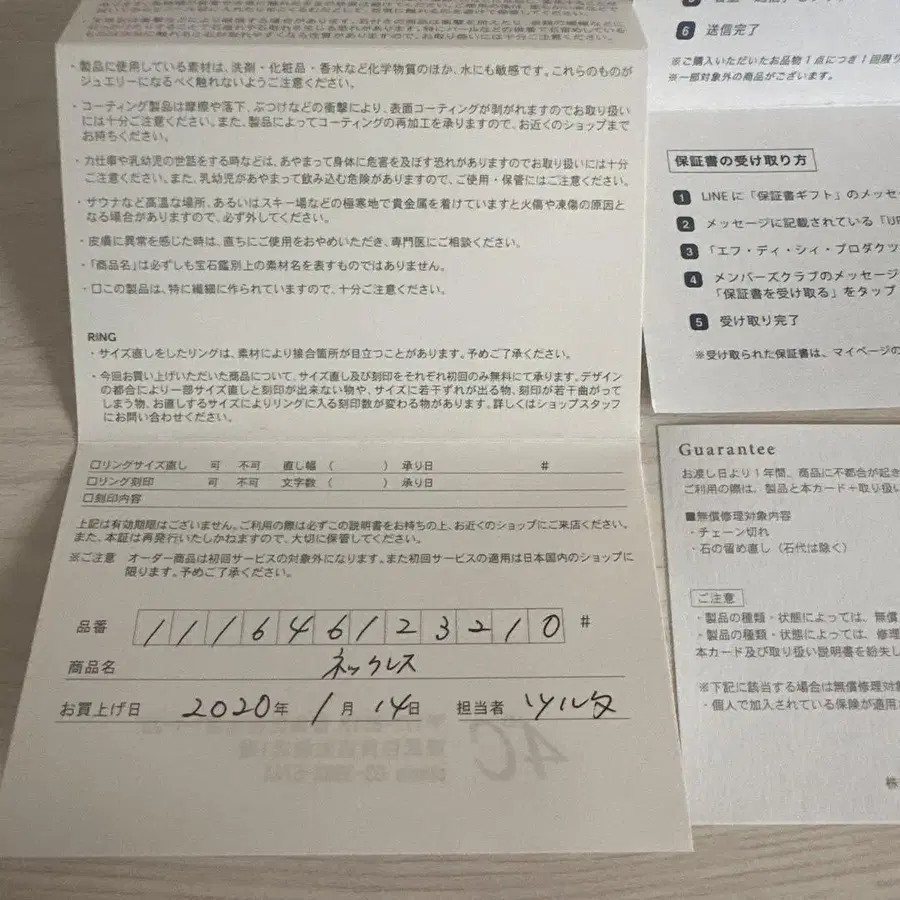 ・製品に使用している素材は、洗剤・化粧品・香水など化学物質のほか、水にも敏感です。これらのものが
ジュエリーになるべく触れないようご注意ください。
・コーティング製品は摩擦や落下、ぶつけなどの衝撃により、表面コーティングが剥がれますのでお取り扱い
には十分ご注意ください。また、製品によってコーティングの再加工を承りますので、お近くのショップまで
お持ちください。
・力仕事や乳幼児の世話をする時などは、あやまって身体に危害を及ぼす恐れがありますのでお取り扱いには十分
ご注意ください。また、乳幼児があやまって飲み込む危険がありますので、ご使用・保管にはご注意ください。
・サウナなど高温な場所、あるいはスキー場などの極寒地で貴金属を着けていますと火傷や凍傷の原因と
なる場合がありますので、必ず外してください。
・皮膚に異常を感じた時は、直ちにご使用をおやめいただき、専門医にご相談ください。
・「商品名」は必ずしも宝石鑑別上の素材名を表すものではありません。
・□この製品は、特に繊細に作られていますので、十分ご注意ください。
RING
・サイズ直しをしたリングは、素材により接合箇所が目立つことがあります。予めご了承ください。
・今回お買い上げいただいた商品について、サイズ直し及び刻印をそれぞれ初回のみ無料にて承ります。デザイン
の都合により一部サイズ直しと刻印が出来ない物や、サイズに若干ずれが出る物、刻印が若干曲がって
しまう物、お直しするサイズによりリングに入る刻印数が変わる物があります。詳しくはショップスタッフ
にお問い合わせください。
□リングサイズ直し 可 不可 直し幅 ( ) 承り日 #
□リング刻印 可 不可 文字数 ( ) 承り日
□刻印内容
上記は有効期限はございません。ご利用の際は必ずこの説明書をお持ちの上、お近くのショップにご来店ください。
また、本証は再発行いたしかねますので、大切に保管してください。
※ご注意 オーダー商品は初回サービスの対象外になります。また初回サービスの適用は日本国内のショップに
限ります。予めご了承ください。
品番 111646123210 #
商品名 ネックレス
お買上げ日 2020年 1月 14日 担当者 ツルタ
6 送信完了
※ご購入いただいたお品物1点につき1回限り
※一部対象外の商品がございます。
保証書の受け取り方
1 LINEに「保証書ギフト」のメッセー
2 メッセージに記載されている「UR
3 「エフ・ディ・シィ・プロダクツ
4 メンバーズクラブのメッセージ
「保証書を受け取る」をタップ
5 受け取り完了
※受け取られた保証書は、マイページの
Guarantee
お渡し日より1年間、商品に不都合が起き
ご利用の際は、製品と本カード+取り扱い
■無償修理対象内容
・チェーン切れ
・石の留め直し（石代は除く）
ご注意
・製品の種類・状態によっては、無償
・製品の種類・状態によっては、修理
本カード及び取り扱い説明書を紛失し
※下記に該当する場合は無償修理対象
・個人で加入されている保険が適用
株